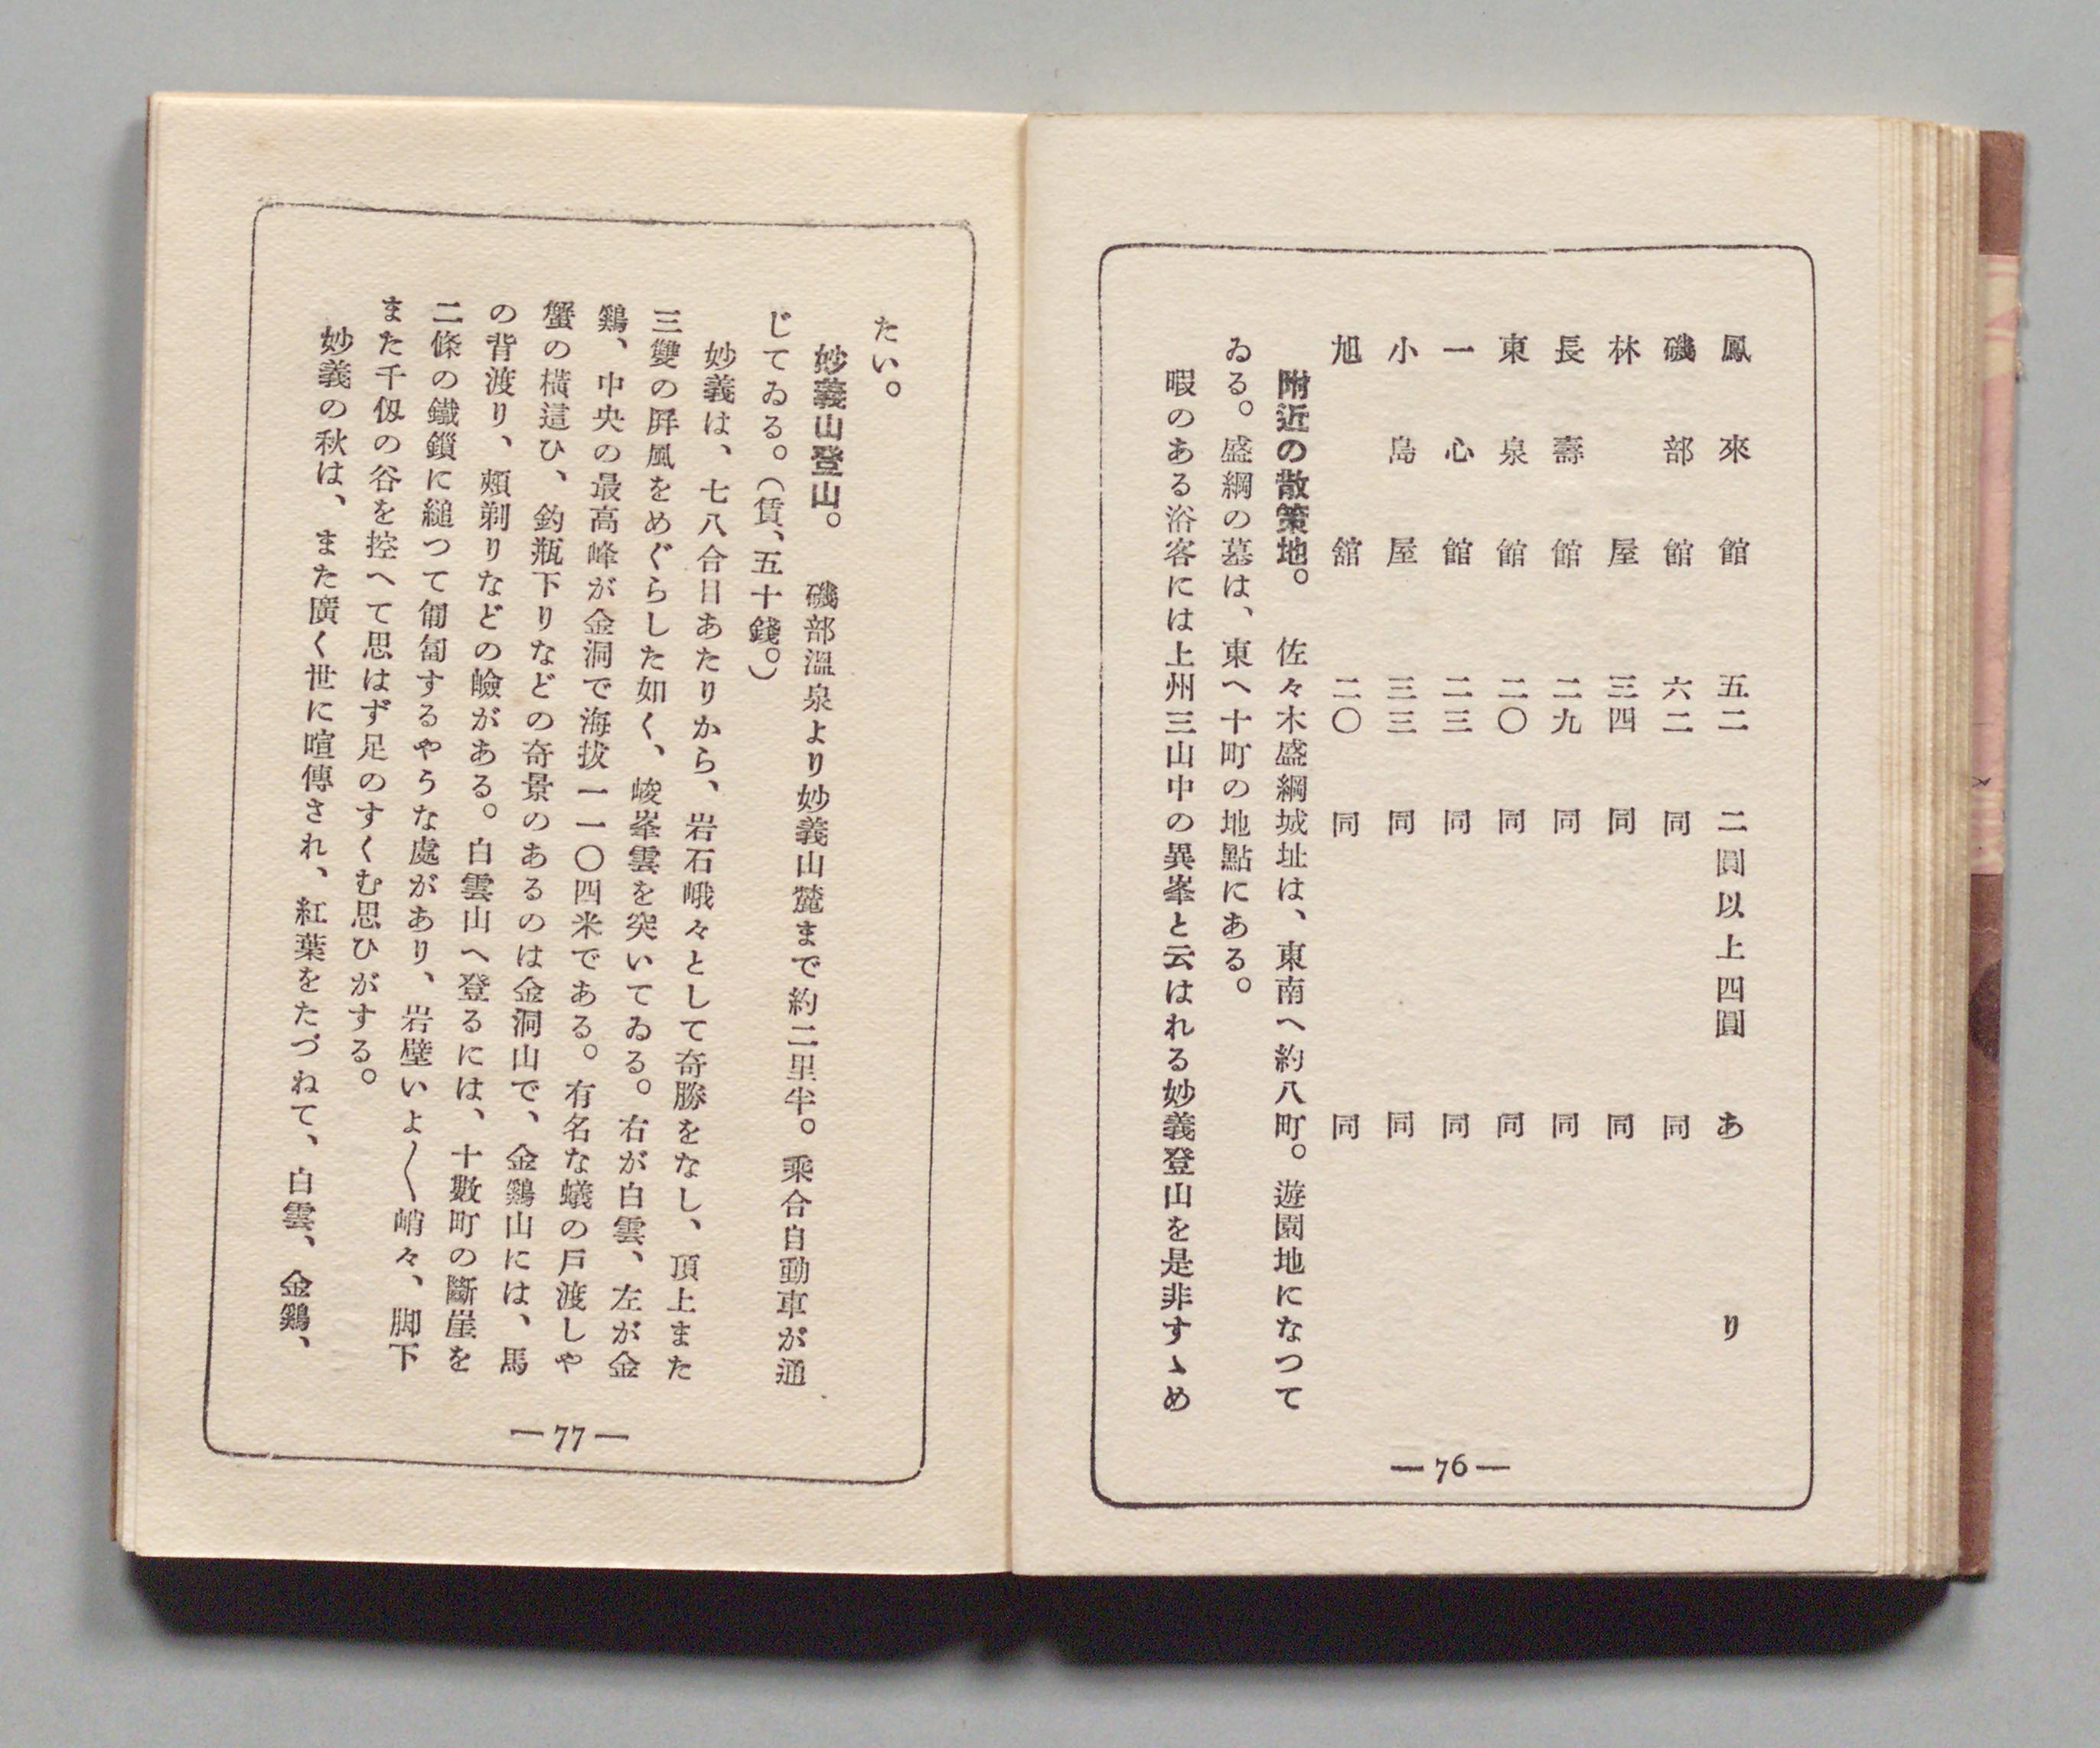 鳳來館 五二 二圓以上四圓 あり
磯部館 六二 同 同
林屋 三四 同 同
長壽館 二九 同 同
東泉館 二〇 同 同
一心館 二三 同 同
小島屋 三三 同 同
旭舘 二〇 同 同
附近の散策地。 佐々木盛綱城址は、東南へ約八町。遊園地になつて
ゐる。盛綱の墓は、東へ十町の地點にある。
暇のある浴客には上州三山中の異峯と云はれる妙義登山を是非すゝめ
— 76 —
たい。
妙義山登山。 磯部溫泉より妙義山麓まで約二里半。乘合自動車が通
じてゐる。（賃、五十錢。）
妙義は、七八合目あたりから、岩石峨々として奇勝をなし、頂上また
三雙の屛風をめぐらした如く、峻峯雲を突いてゐる。右が白雲、左が金
鷄、中央の最高峰が金洞で海拔一一〇四米である。有名な蟻の戸渡しや
蟹の橫這ひ、釣瓶下りなどの奇景のあるのは金洞山で、金鷄山には、馬
の背渡り、頰剃りなどの嶮がある。白雲山へ登るには、十數町の斷崖を
二條の鐵鎖に縋つて匍匐するやうな處があり、岩壁いよ〱峭々、脚下
また千仭の谷を控へて思はず足のすくむ思ひがする。
妙義の秋は、また廣く世に喧傳され、紅葉をたづねて、白雲、金鷄、
— 77 —